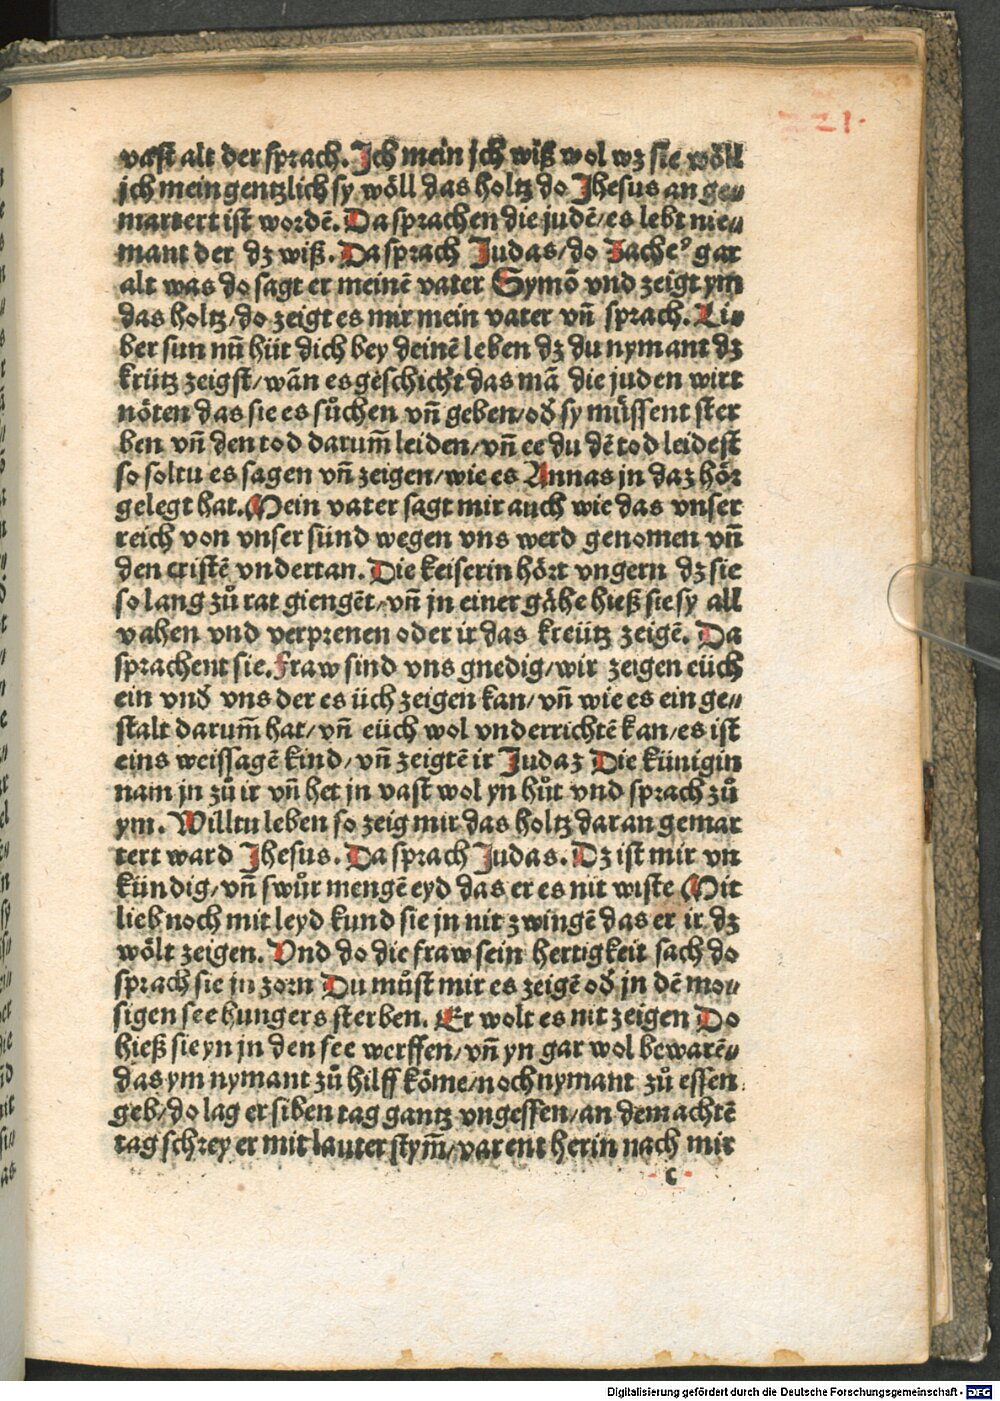 xxi.
vast alt der sprach. Jch mein jch wiß wol wz sie wöll
jch mein gentzlich sy wöll das holtz do Jhesus an ge⸗
martert ist wordē. Da sprachen die judē/es lebt nie⸗
mant der dz wiß. Da sprach Judas/do Zacheꝰ gar
alt was do sagt er meinē vater Symō vnd zeigt ym
das holtz/do zeigt es mir mein vater vn̄ sprach. Lie⸗
ber sun nū hüt dich bey deinē leben dz du nymant dz
krütz zeigst/wān es geschicht das mā die juden wirt
nöten das sie es sůchen vn̄ geben/oď sy müssent ster
ben vn̄ den tod darum̄ leiden/vn̄ ee du dē tod leidest
so soltu es sagen vn̄ zeigen/wie es Annas jn daz hör
gelegt hat. Mein vater sagt mir auch wie das vnser
reich von vnser sünd wegen vns werd genomen vn̄
den cristē vndertan. Die keiserin hört vngern dz sie
so lang zů rat giengēt/vn̄ jn einer gähe hieß sie sy all
vahen vnd verprenen oder ir das kreütz zeigē. Da
sprachent sie. Fraw sind vns gnedig/wir zeigen eüch
ein vnď vns der es üch zeigen kan/vn̄ wie es ein ge⸗
stalt darum̄ hat/vn̄ eüch wol vnderrichtē kan/es ist
eins weissagē kind/vn̄ zeigtē ir Judaz Die künigin
nam jn zů ir vn̄ het jn vast wol yn hůt vnd sprach zů
ym. Willtu leben so zeig mir das holtz daran gemar
tert ward Jhesus. Da sprach Judas. Dz ist mir vn
kündig/vn̄ swůr mengē eyd das er es nit wiste Mit
lieb noch mit leyd kund sie jn nit zwingē das er ir dz
wölt zeigen. Vnd do die fraw sein hertigkeit sach do
sprach sie jn zorn Du můst mir es zeigē oď jn dē mo⸗
sigen see hungers sterben. Er wolt es nit zeigen Do
hieß sie yn jn den see werffen/vn̄ yn gar wol bewarē⸗
das ym nymant zů hilff köme/noch nymant zů essen
geb/do lag er siben tag gantz vngessen/an dem achtē
tag schrey er mit lauter stym̄/varent her in nach mir
c
Digitalisierung gefördert durch die Deutsche Forschungsgemeinschaft - DFG